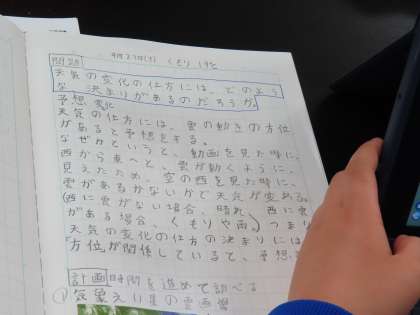 問題
天気の変化の仕方には、どのよう
な決まりがあるのだろうか。
予想 変化
天気の仕方には、雲の動きの方位
があると予想をする。
なぜかというと、動画を見た時に、
西から東へと、雲が動くように、
見えたため、空の西を見た時に、
雲があるかないかで天気が変める。
(西に雲がない場合、晴れ、西に雲
がある場合、くもりや雨。)つまり
天気の変化の仕方の決まりには
「方位」が関係していると、予想
計画 時間を進めて調べる
① 気象えい星の雲画像